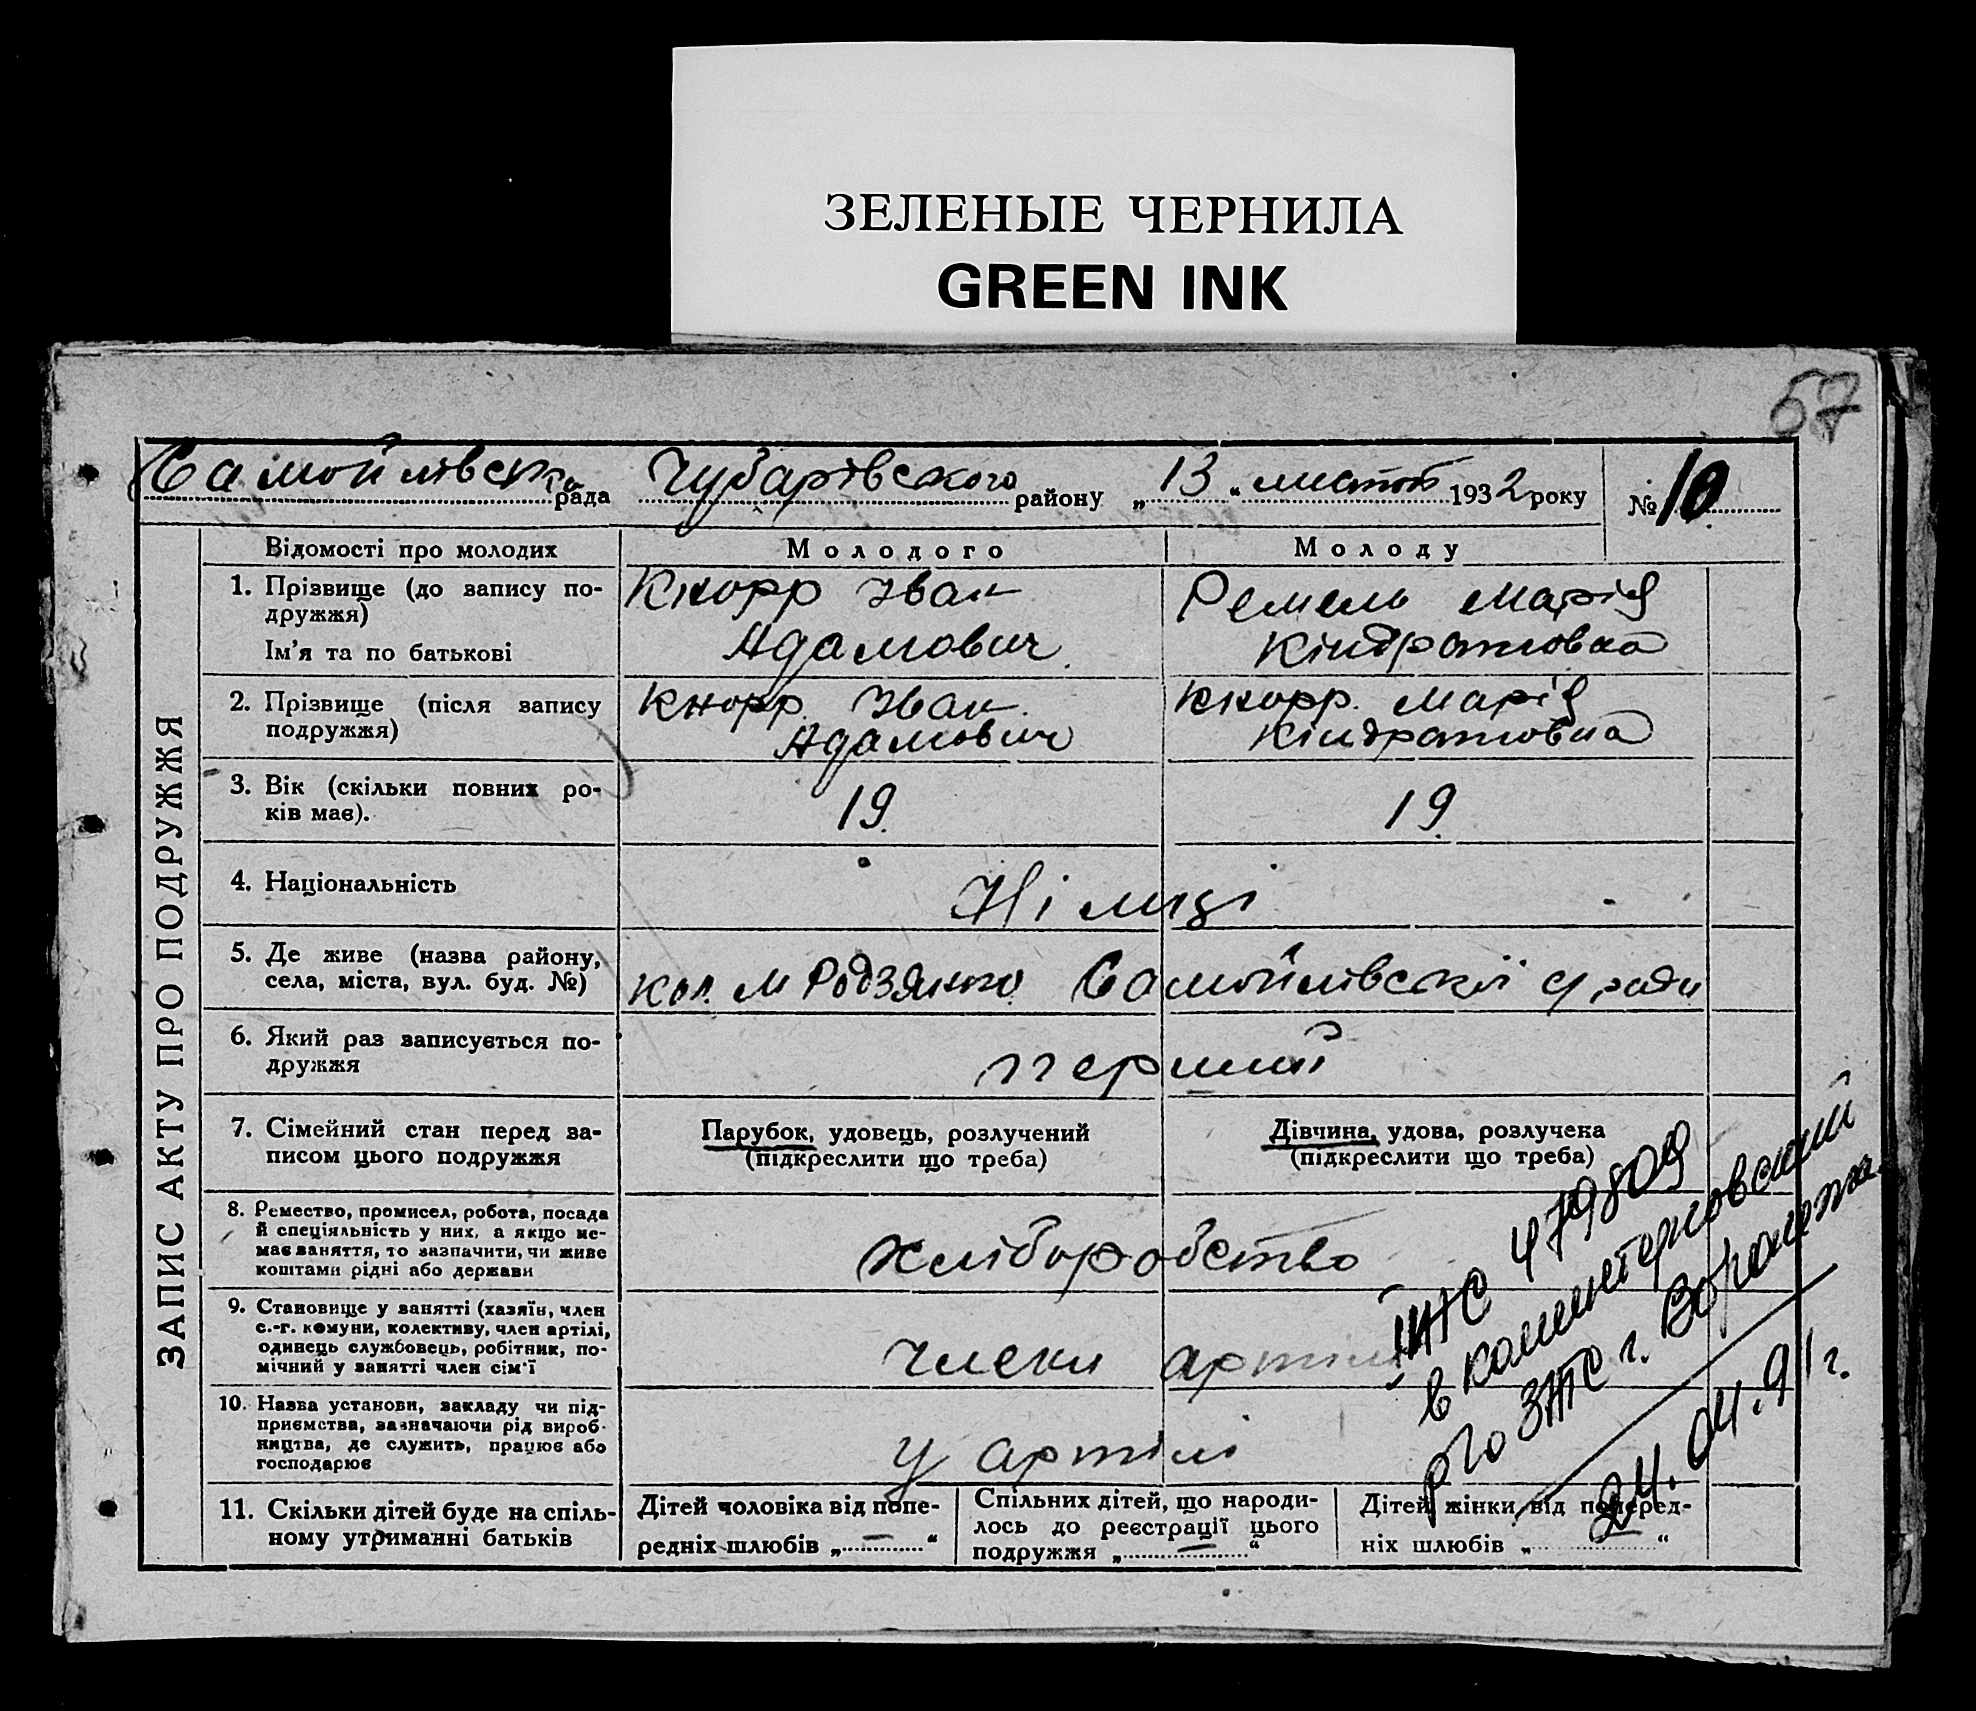 ЗЕЛЕНЫЕ ЧЕРНИЛА
GREEN INK
57
Самойлівська рада Чубарівського району „13“ листоп 1932 року № 10
ЗАПИС АКТУ ПРО ПОДРУЖЖЯ
Відомості про молодих
Молодого
Молоду
1. Прізвище (до запису по-
дружжя)
Ім'я та по батькові
Кнорр Іван
Адамович
Ремель Марія
Кіндратовна
2. Прізвище (після запису
подружжя)
Кнорр Іван
Адамович
Кнорр Марія
Кіндратовна
3. Вік (скільки повних ро-
ків має).
19
19
4. Національність
Німці
5. Де живе (назва району,
села, міста, вул. буд. №)
кол. М Родзянко Самойлівскої с/ради
6. Який раз записується по-
дружжя
перший
7. Сімейний стан перед за-
писом цього подружжя
Парубок, удовець, розлучений
(підкреслити що треба)
Дівчина, удова, розлучена
(підкреслити що треба)
8. Ремество, промисел, робота, посада
й спеціяльність у них, а якщо не-
має заняття, то зазначити, чи живе
коштами рідні або держави
хліборобство
9. Становище у занятті (хазяїн, член
с.-г. комуни, колективу, член артілі,
одинець службовець, робітник, по-
мічний у занятті член сім'ї
члени артілі
10. Назва установи, закладу чи під-
приємства, зазначаючи рід вироб-
ництва, де служить, працює або
господарює
у артілі
11. Скільки дітей буде на спіль-
ному утриманні батьків
Дітей чоловіка від попе-
редніх шлюбів „—“
Спільних дітей, що народи-
лось до реєстрації цього
подружжя „—“
Дітей жінки від поперед-
ніх шлюбів „—“
479809
в коминтерновский
р/о ЗАГС г. Воронежа
24.04.91г.